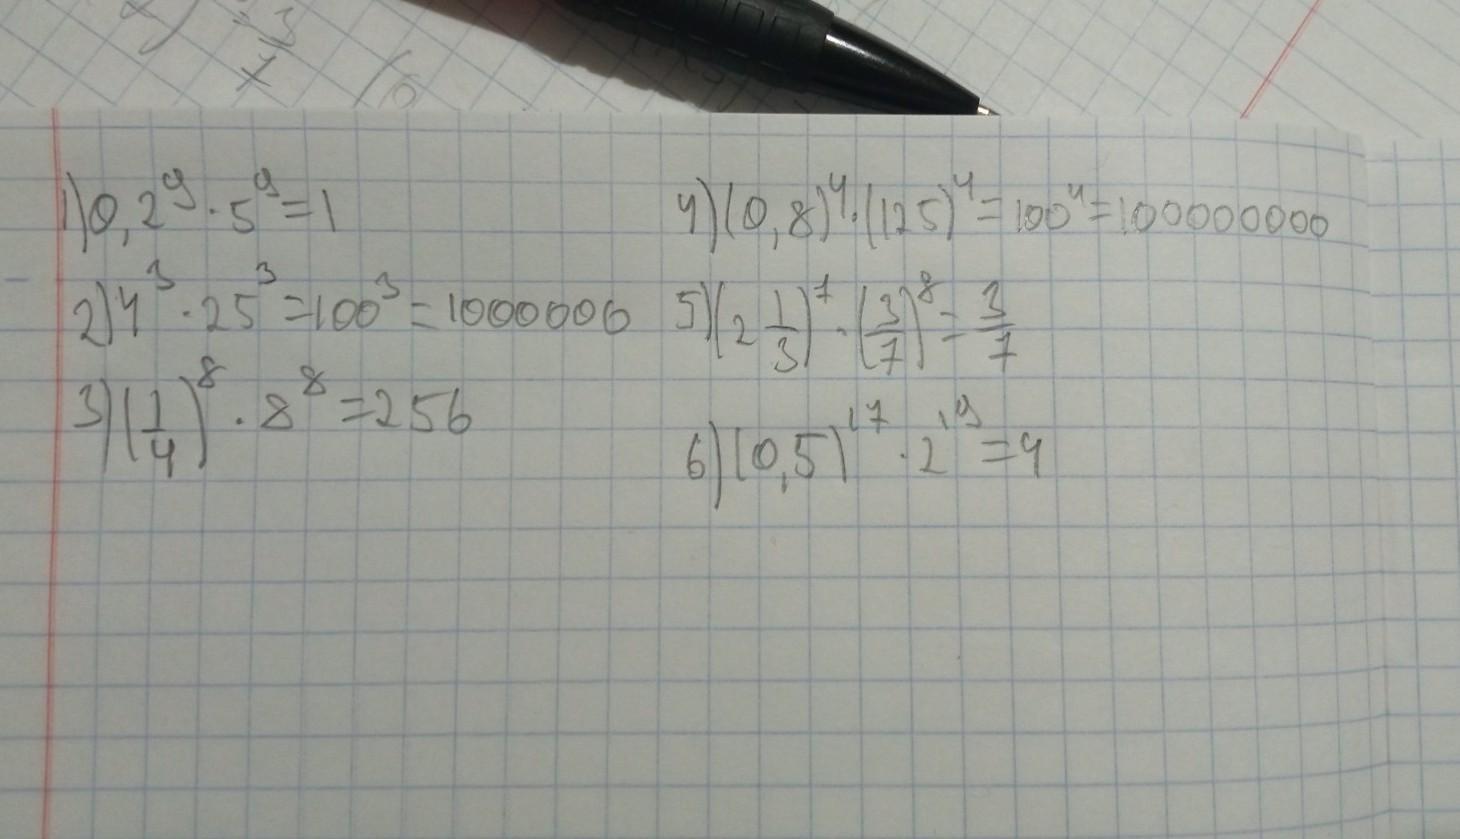 1) 0,2⁹ · 5⁹ = 1
2) 4³ · 25³ = 100³ = 1000000
3) (1/4)⁸ · 8⁸ = 256
4) (0,8)⁴ · (125)⁴ = 100⁴ = 100000000
5) (2 1/3)⁷ · (3/7)⁸ = 3/7
6) (0,5)¹⁷ · 2¹⁹ = 4